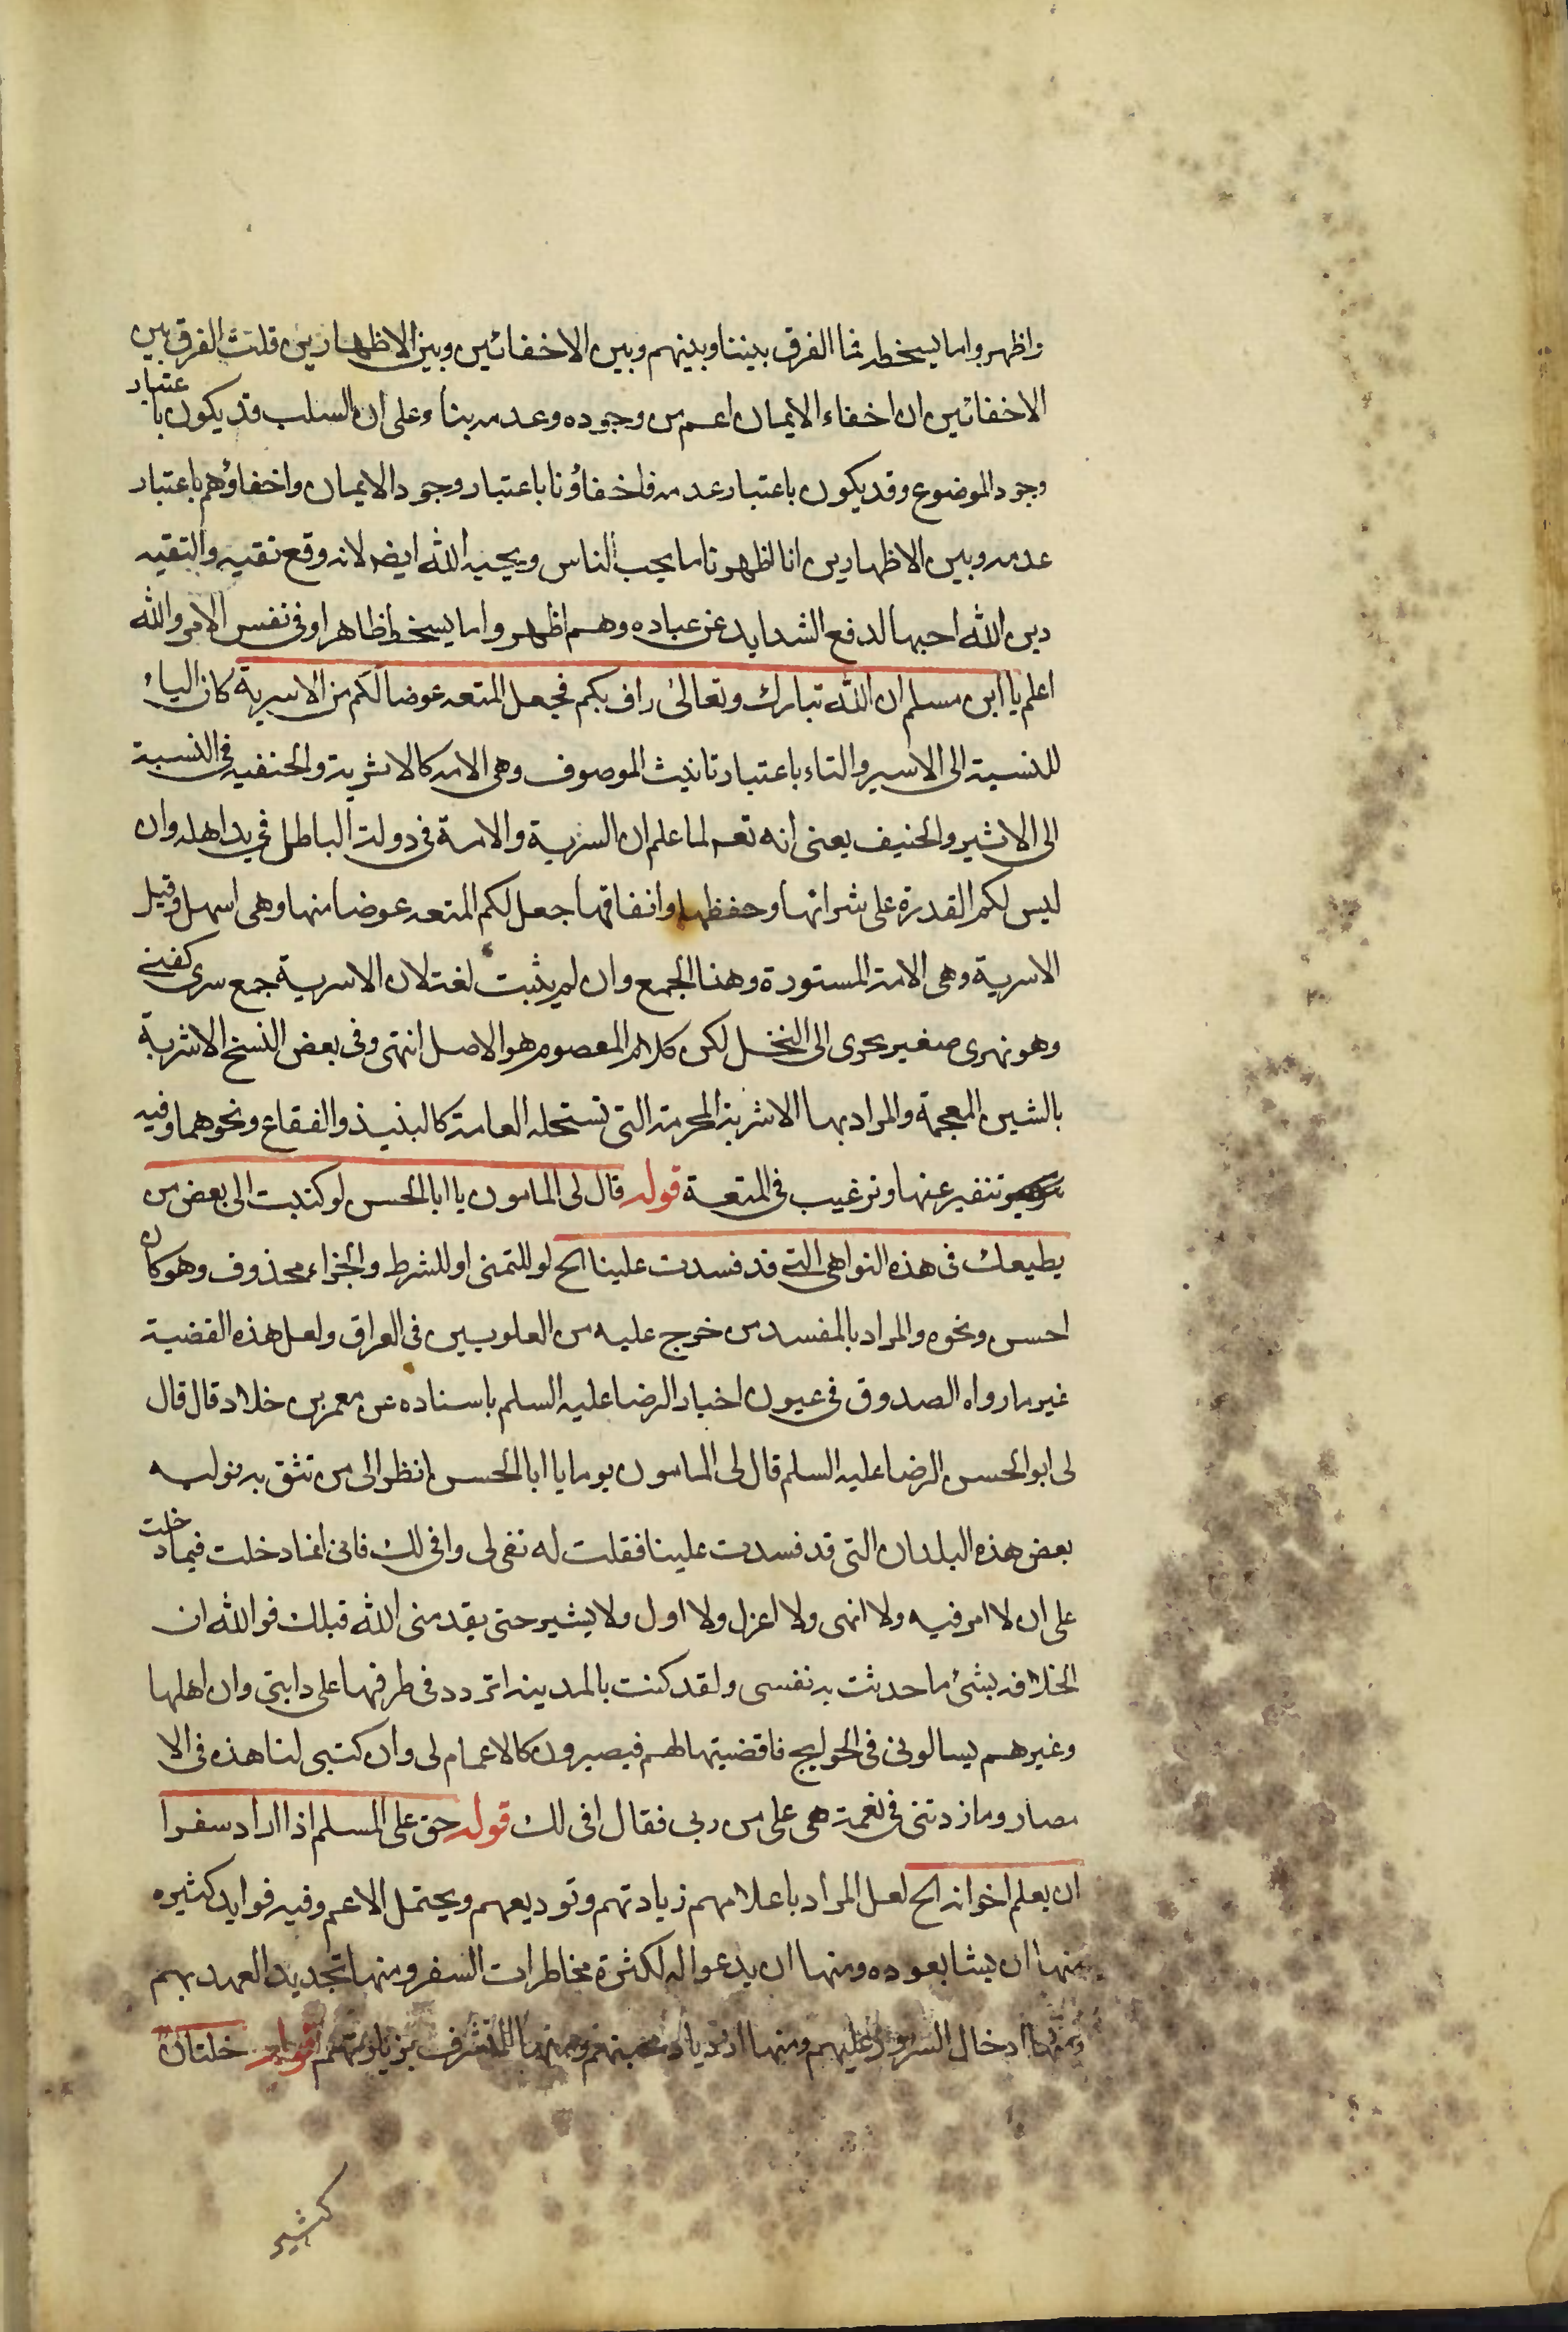 واظهروا ما يسخط فما الفرق بيننا وبينهم وبين الاخفائين وبين الاظهارين قلت الفرق بين
الاخفائين ان اخفاء الايمان اعم من وجوده وعدمه بناء على ان السلب قد يكون باعتبار
وجود الموضوع وقد يكون باعتبار عدمه فاخفاؤنا باعتبار وجود الايمان واخفاؤهم باعتبار
عدمه وبين الاظهارين انا اظهرنا ما يحب الناس ويحبه الله ايضا لانه وقع تقيه والتقيه
دين الله احبها لدفع الشدايد عن عباده وهم اظهروا ما يسخط ظاهرا وفى نفس الامر والله
اعلم يا ابن مسلم ان الله تبارك وتعالى راف بكم فجعل المتعه عوضا لكم من الاسرية كان الياء
للنسبة الى الاسير والتاء باعتبار تانيث الموصوف وهى الامه كالاثرية والحنفيه فى النسبة
الى الاثير والحنيف يعنى انه تعم لما علم ان السرية والامة فى دولة الباطل فى يد اهله وان
ليس لكم القدرة على شرائها وحفظها وانفاقها جعل لكم المتعه عوضا منها وهى اسهل وقيل
الاسرية وهى الامة المستورة وهذا الجمع وان لم يثبت لغة لان الاسرية جمع سرى كغنى
وهو نهرى صغير يجرى الى النخل لكن كلام المعصوم هو الاصل انتهى وفى بعض النسخ الاشربة
بالشين المعجمة والمراد بها الاشربة المحرمة التى تستحله العامة كالنبيذ والفقاع ونحوهما وفيه
تنفير عنها وترغيب فى المتعة قوله قال لى المامون يا ابا الحسن لو كتبت الى بعض من
يطيعك فى هذه النواهى التى قد فسدت علينا الخ لو للتمنى او للشرط والجزاء محذوف وهو كان
احسن ونحوه والمراد بالمفسد من خرج عليه من العلويين فى العراق ولعل هذه القضية
غير ما رواه الصدوق فى عيون اخبار الرضا عليه السلم باسناده عن معمر بن خلاد قال قال
لى ابو الحسن الرضا عليه السلم قال لى المامون يوما يا ابا الحسن انظر الى من تثق به نوليه
بعض هذه البلدان التى قد فسدت علينا فقلت له تفى لى وافى لك فانى انما دخلت فيما دخلت
على ان لا امر فيه ولا انهى ولا اعزل ولا اول ولا يشير حتى يقدمنى الله قبلك فوالله ان
الخلافه بشئ ما حدثت به نفسى ولقد كنت بالمدينه اتردد فى طرقها على دابتى وان اهلها
وغيرهم يسالونى فى الحوايج فاقضيتها لهم فيصيرون كالاعمام لى وان كتبى لنا هذه فى الا
مصار وما زدتنى فى نعمة هى على من ربى فقال افى لك قوله حق على المسلم اذا اراد سفرا
ان يعلم اخوانه الخ لعل المراد باعلامهم زيادتهم وتوديعهم ويحتمل الاعم وفيه فوايد كثيره
منها ان يشايعوده ومنها ان يدعوا له لكثرة مخاطرات السفر ومنها تجديد العهد بهم
ومنها ادخال السرور عليهم ومنها ازدياد محبتهم ومنها التشرف بزيارتهم قوله خلتان
كثير